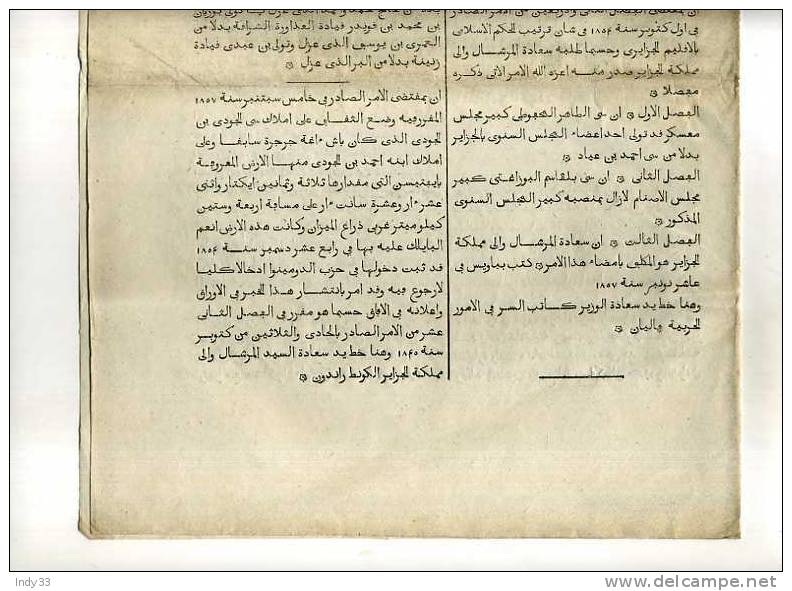 في اول كتوبر سنة ١٨٥٤ في شان ترتيب الحكم الاسلامي
بالاقليم الجزايري وحسبما طلبه سعادة المرشال والي
مملكة الجزاير صدر منه اعزه الله الامر الاتي ذكره
مفصلا
الفصل الاول ان سي الطاهر كبير مجلس
معسكر قد تولى احد اعضاء المجلس السنوي بالجزاير
بدلا من سي احمد بن عياد
الفصل الثاني ان سي بلقاسم البوزاغتي كبير
مجلس الاصنام لازال بمنصبه كبير المجلس السنوي
المذكور
الفصل الثالث ان سعادة المرشال والي مملكة
الجزاير هو المكلف بامضاء هذا الامر كتب بباريس في
عاشر نونبر سنة ١٨٥٧
وهنا خط يد سعادة الوزير كاتب السر في الامور
الحربية ڢاليان
بن محمد بن فويدر قيادة العذاورة الشرافة بدلا من
العمري بن يوسف الذي عزل وتولى بن عبدي قيادة
بدلا من الذي عزل
ان بمقتضى الامر الصادر في خامس سبتنبر سنة ١٨٥٧
المقرر فيه وضع الثقاف على املاك سي الجودي بن
الجودي الذي كان باش ءاغة جرجرة سابقا وعلى
املاك ابنه احمد بن الجودي منها الارض المعروفة
التي مقدارها ثلاثة وثمانين ايكتار واثني
عشر ءار وعشرة سانت ءار على مسافة اربعة وستين
كيلوميتر غربي ذراع الميزان وكانت هذه الارض انعم
البايلك عليه بها في رابع عشر دسمبر سنة ١٨٥٤
قد ثبت دخولها في حزب الدومينوا ادخالا كليا
لا رجوع فيه وقد امر بانتشار هذا الخبر في الاوراق
واعلانه في الافاق حسبما هو مقرر في الفصل الثاني
عشر من الامر الصادر بالحادي والثلاثين من كتوبر
سنة ١٨٤٥ وهنا خط يد سعادة السيد المرشال والي
مملكة الجزاير الكونط راندون
Indy33
www.delcampe.net